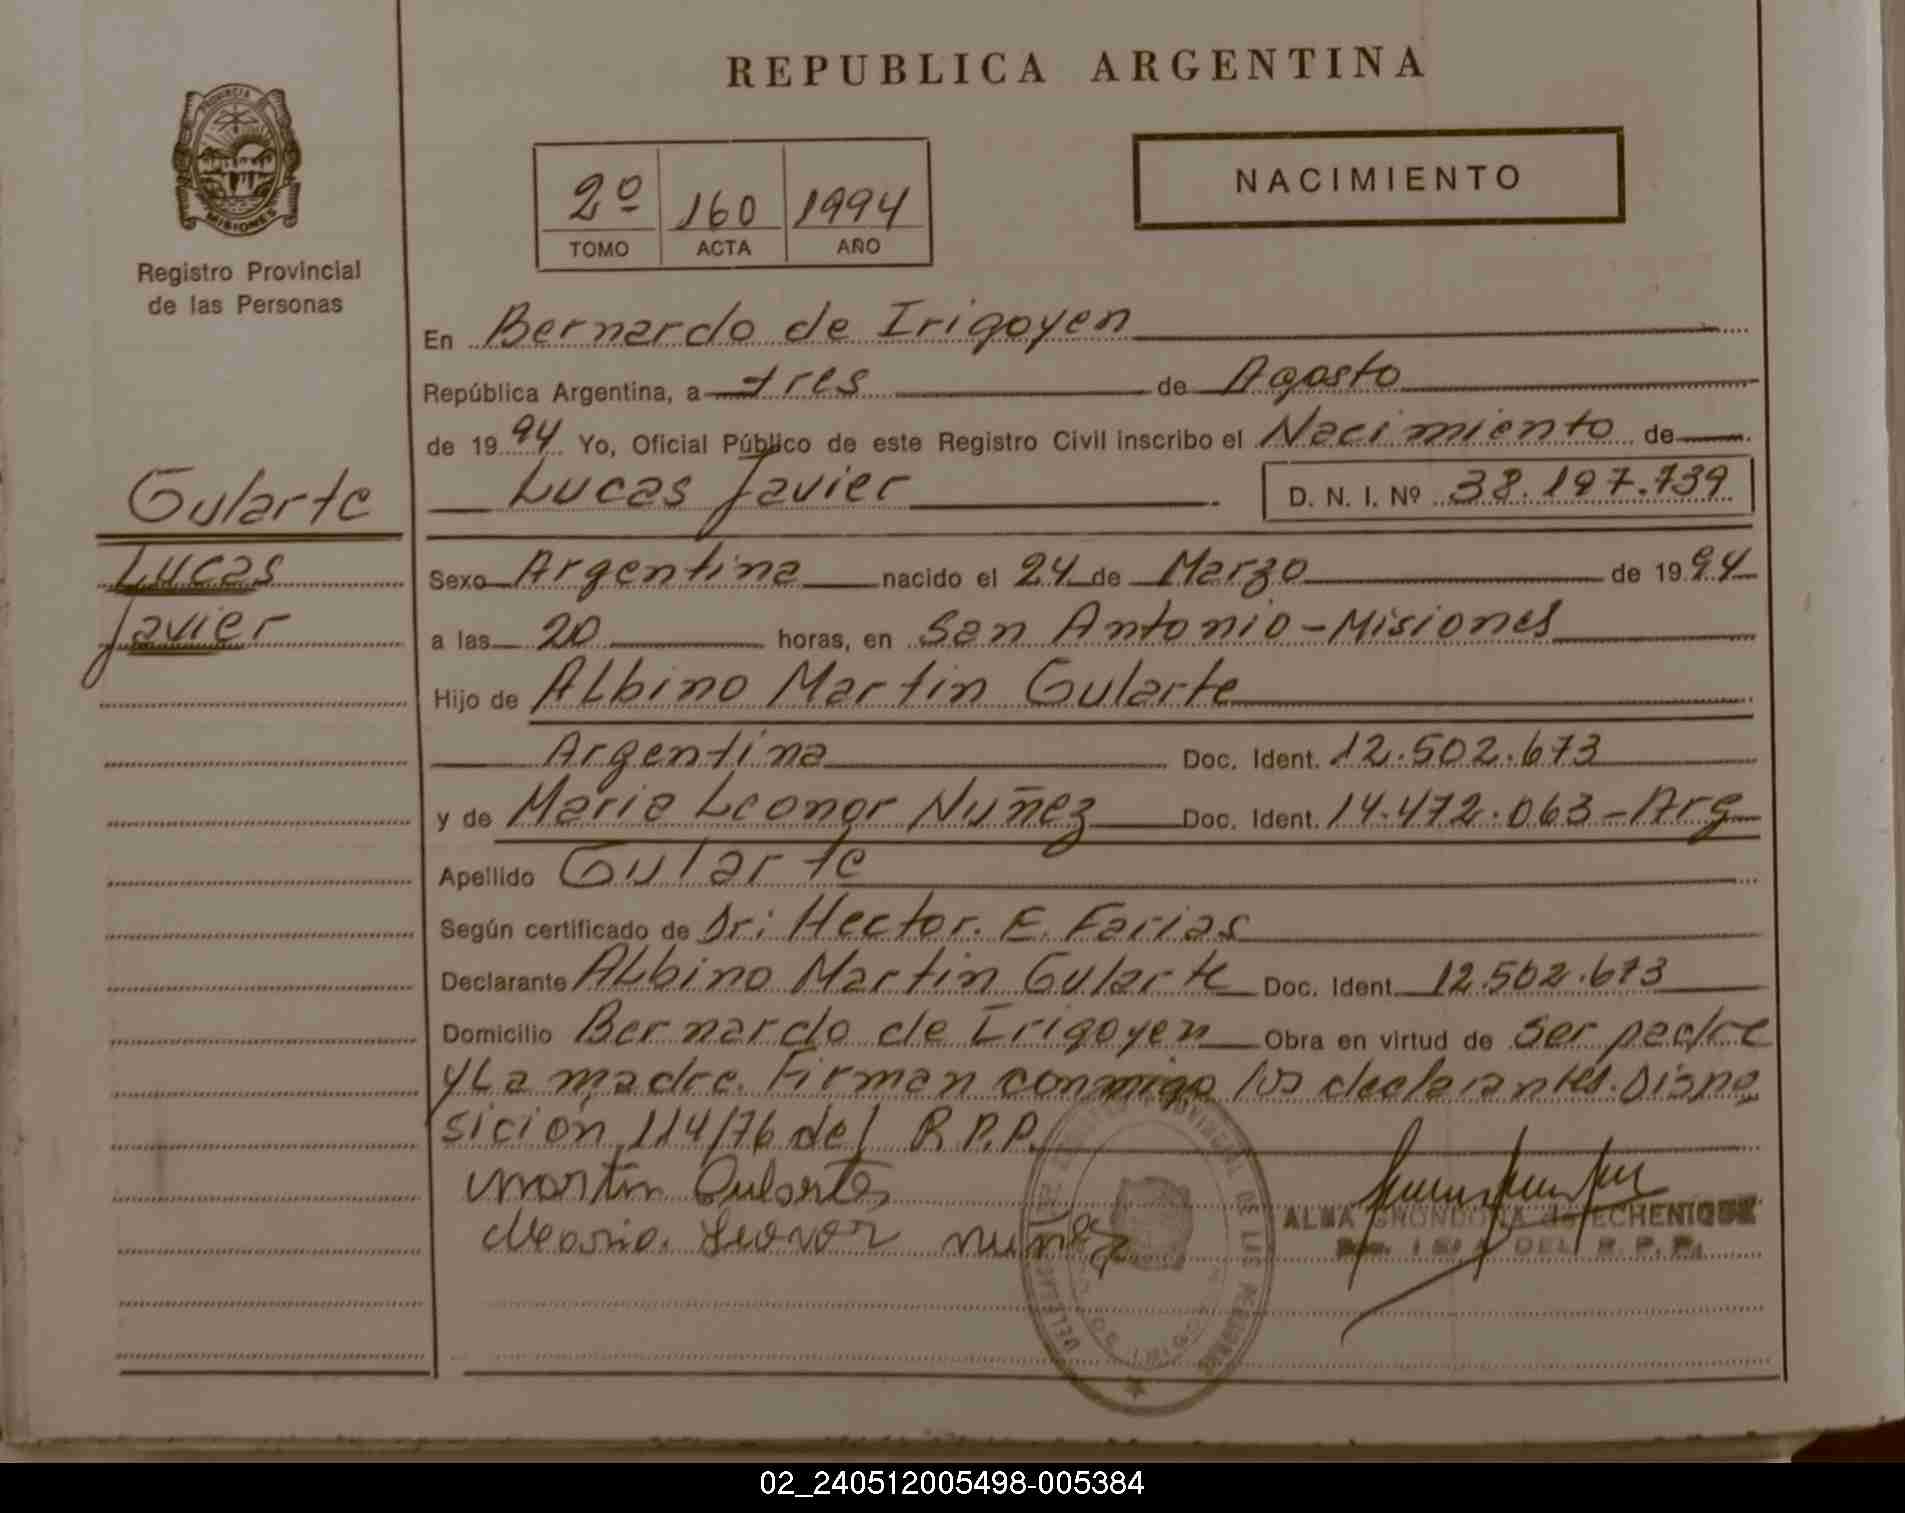 REPUBLICA ARGENTINA
PROVINCIA
MISIONES
Registro Provincial
de las Personas
2º 160 1994
TOMO ACTA AÑO
NACIMIENTO
En Bernardo de Irigoyen
República Argentina, a tres de Agosto
de 1994 Yo, Oficial Público de este Registro Civil inscribo el Nacimiento de
Gularte
Lucas
Javier
Lucas Javier D. N. I. Nº 38.197.739
Sexo Argentina nacido el 24 de Marzo de 1994
a las 20 horas, en San Antonio-Misiones
Hijo de Albino Martin Gularte
Argentina Doc. Ident. 12.502.673
y de Maria Leonor Nuñez Doc. Ident. 14.472.063-Arg
Apellido Gularte
Según certificado de Dr: Hector. E. Farias
Declarante Albino Martin Gularte Doc. Ident. 12.502.673
Domicilio Bernardo de Irigoyen Obra en virtud de ser padre
y La madre. Firman conmigo los declarantes. Dispo
sición 114/76 del R.P.P.
Martin Gularte
Maria Leonor Nuñez
PROVINCIAL DE LAS PERSONAS
ALBA GRONDONA de ECHENIQUE
DEL R. P. P.
02_240512005498-005384